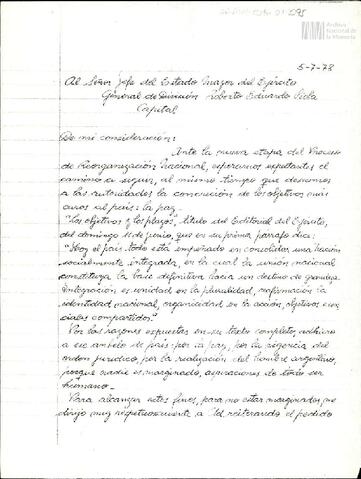 295
Archivo
Nacional de
la Memoria
5-7-78
Al Señor Jefe del Estado Mayor del Ejército
General de División Roberto Eduardo Viola
Capital
De mi consideración:
Ante la nueva etapa del Proceso
de Reorganización Nacional, esperamos expectantes el
camino a seguir, al mismo tiempo que deseamos
a las autoridades la concreción de los objetivos más
caros al país: la paz.
"Los objetivos y los plazos", título del Editorial del Ejército,
del domingo 11 de junio, que en su primer párrafo dice:
"Hoy el país todo está empeñado en consolidar una Nación
socialmente integrada, en la cual la unión nacional
constituya la base definitiva hacia un destino de grandeza.
Integración es unidad en la pluralidad, reafirmación de la
identidad nacional, organicidad en la acción, objetivos esen
ciales compartidos."
Por las razones expuestas en su texto completo, adhiero
a ese anhelo de país: por la paz, por la vigencia del
orden jurídico, por la realización del hombre argentino,
porque nadie es marginado, aspiraciones de todo ser
humano.
Para alcanzar estos fines, para no estar marginados, me
dirijo muy respetuosamente a Ud. reiterando el pedido